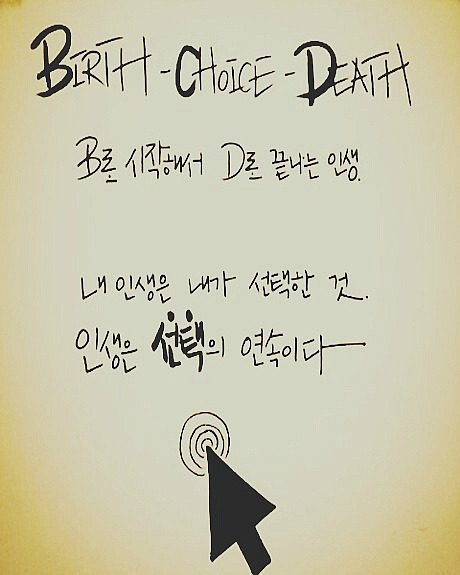 BIRTH-CHOICE-DEATH
B로 시작해서 D로 끝나는 인생.
내 인생은 내가 선택한 것.
인생은 선택의 연속이다